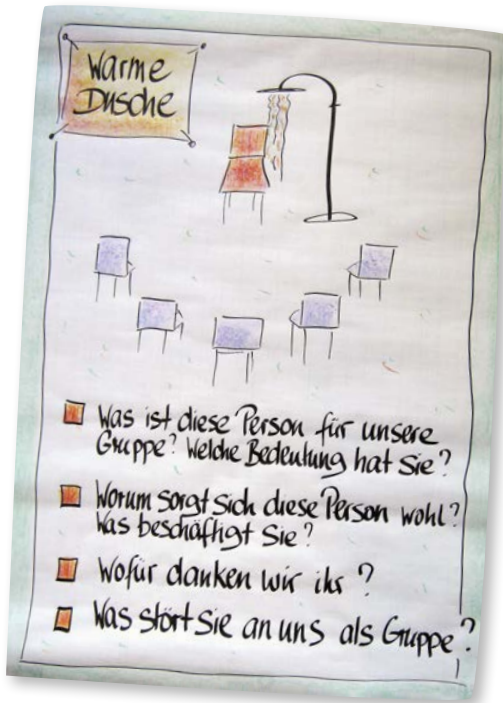 Warme
Dusche
Was ist diese Person für unsere
Gruppe? Welche Bedeutung hat Sie?
Worum sorgt sich diese Person wohl?
Was beschäftigt Sie?
Wofür danken wir ihr?
Was stört Sie an uns als Gruppe?